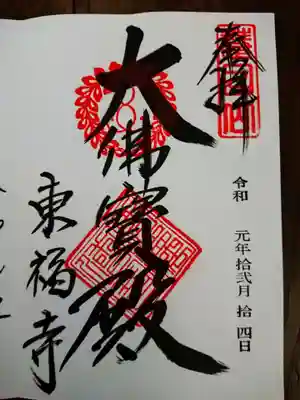 奉拝
令和 元年拾弐月 拾四日
大佛寳殿
東福寺